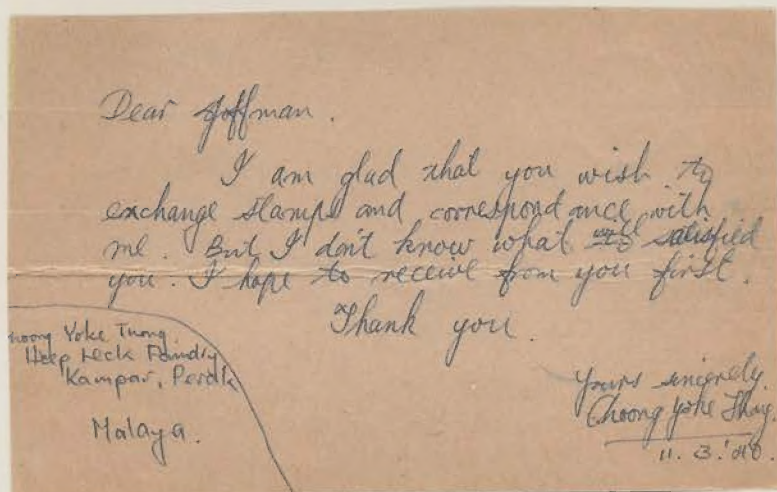 Dear Joffman.
I am glad that you wish to
exchange stamps and correspondance with
me. But I don't know what will satisfied
you. I hope to receive from you first.
Thank you.
Yours sincerely.
Choong Yoke
11. 3. '40.
Choong Yoke
Heep Foundry
Kampar, Perak
Malaya.